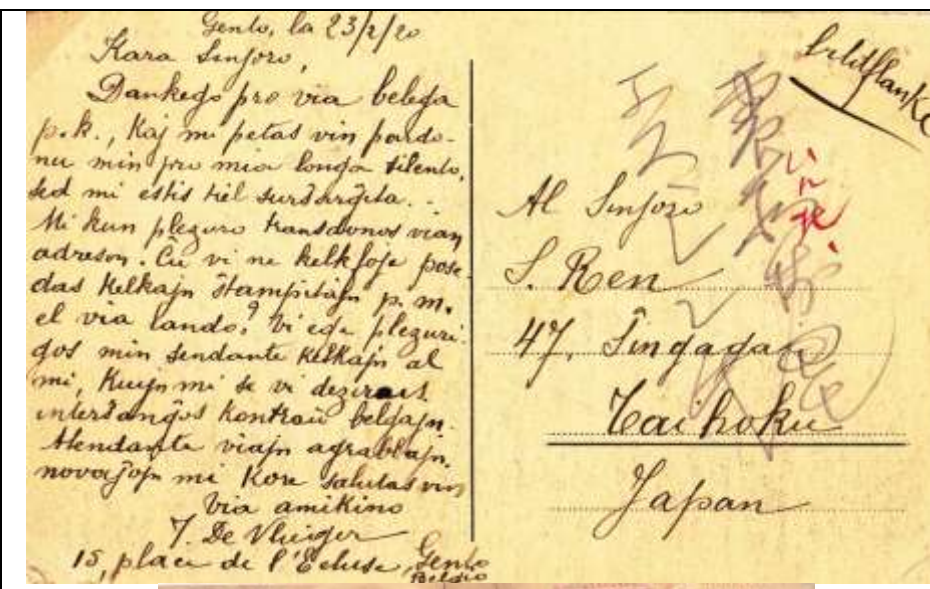 Gento, la 23/2/20
Kara Sinjoro,
Dankego pro via belega
p.k., Kaj mi petas vin pardo-
nu min pro mia longa silento,
sed mi estis tiel surŝarĝita..
Mi kun plezuro transdonos vian
adreson. Ĉu vi ne kelkfoje pose-
das kelkajn stampitajn p.m.
el via lando? Vi ege plezuri-
gos min sendante kelkajn al
mi, kiujn mi se vi deziras
interŝanĝos kontraŭ belgajn.
Atendante viajn agrablajn
novaĵojn mi kore salutas vin
Via amikino
J. De Vlieger
15, place de l'Ecluse, Gento
Belgio
bildflanke
Al Sinjoro
S. Ren
47. Ŝingagai
Taihoku
Japan